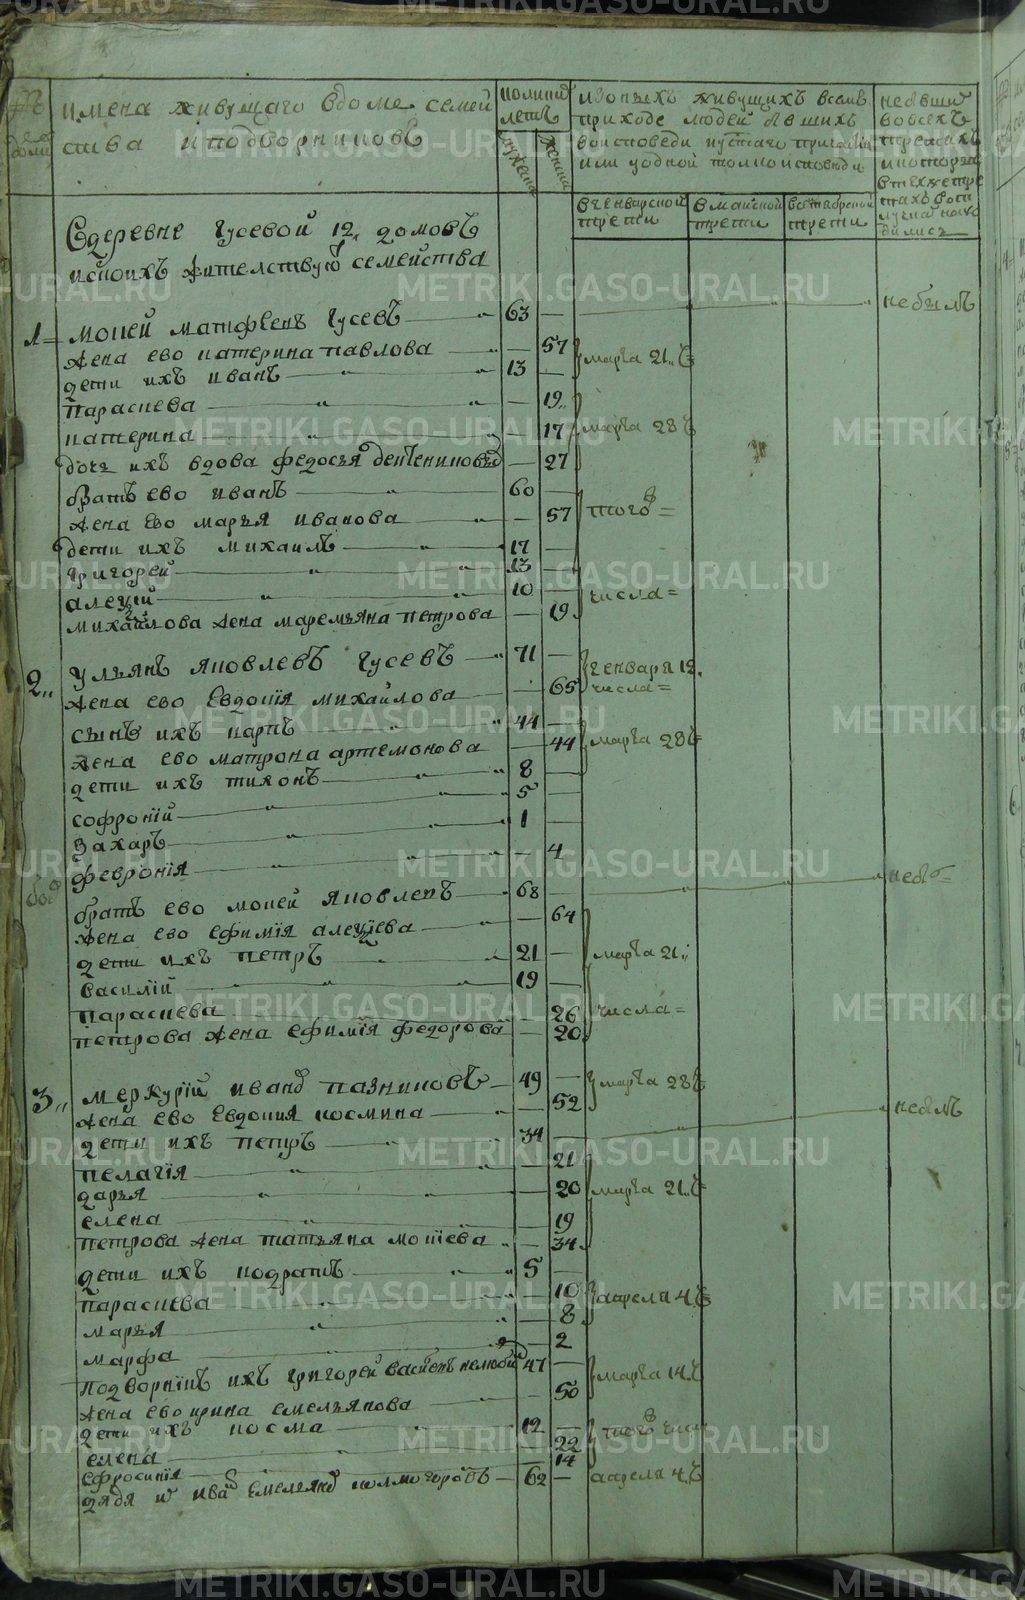 имена живущаго вдоме семей
ства иподворниковъ
поликий
летъ
мужеска
женска
изонихъ живущихъ всемъ
приходе людей бывшихъ
воисповеди иустаго причастия
или уодной толко исповеди
вгенварской
трети
вмайской
трети
всентябрской
трети
небывши
вовсехъ
третяхъ
Вдеревне Гусевой 12, домовъ
исвоихъ жителствующ семейства
1= мокей матфеевъ Гусевъ 63 небылъ
жена ево катерина павлова 57 марта 21. ч
дети ихъ иванъ 13
параскева 19
катерина 17 марта 28 ч
дочь ихъ вдова федосья 27
братъ ево иванъ 60
жена ево марья иванова 57 того =
дети ихъ михаилъ 17
григорей 13
алексій 10 числа =
михайлова жена маремьяна петрова 19
2,, Ульянъ яковлевъ Гусевъ 71 генваря 12.
жена ево Евдокія михайлова 65 числа =
сынъ ихъ карпъ 44
жена ево матрона артемонова 44 марта 28 ч
дети ихъ тихонъ 8
софроній 5
Захаръ 1
февронія 4
братъ ево мокей яковлевъ 68 небы=
жена ево ефимія алексіева 64
дети ихъ петръ 21 марта 21.
василій 19
параскева 26 числа =
петрова жена ефимія федорова 20
3,, меркурій иванов казниковъ 49 марта 28 ч
жена ево Евдокия космина 52
дети ихъ петръ 34 небылъ
пелагія 21
дарья 20 марта 21. ч
елена 19
петрова жена татьяна мокіева 34
дети ихъ кодратъ 5
параскева 10 апреля 4. ч
марья 8
марфа 2
подворникъ ихъ григорей 47 марта 14. ч
жена ево ирина емельянова 50
дети ихъ косма 12 того числ
елена 22
ефросинія 14
дядя и иван емелянов колмогоровъ 62 апреля 4. ч
METRIKI.GASO-URAL.RU